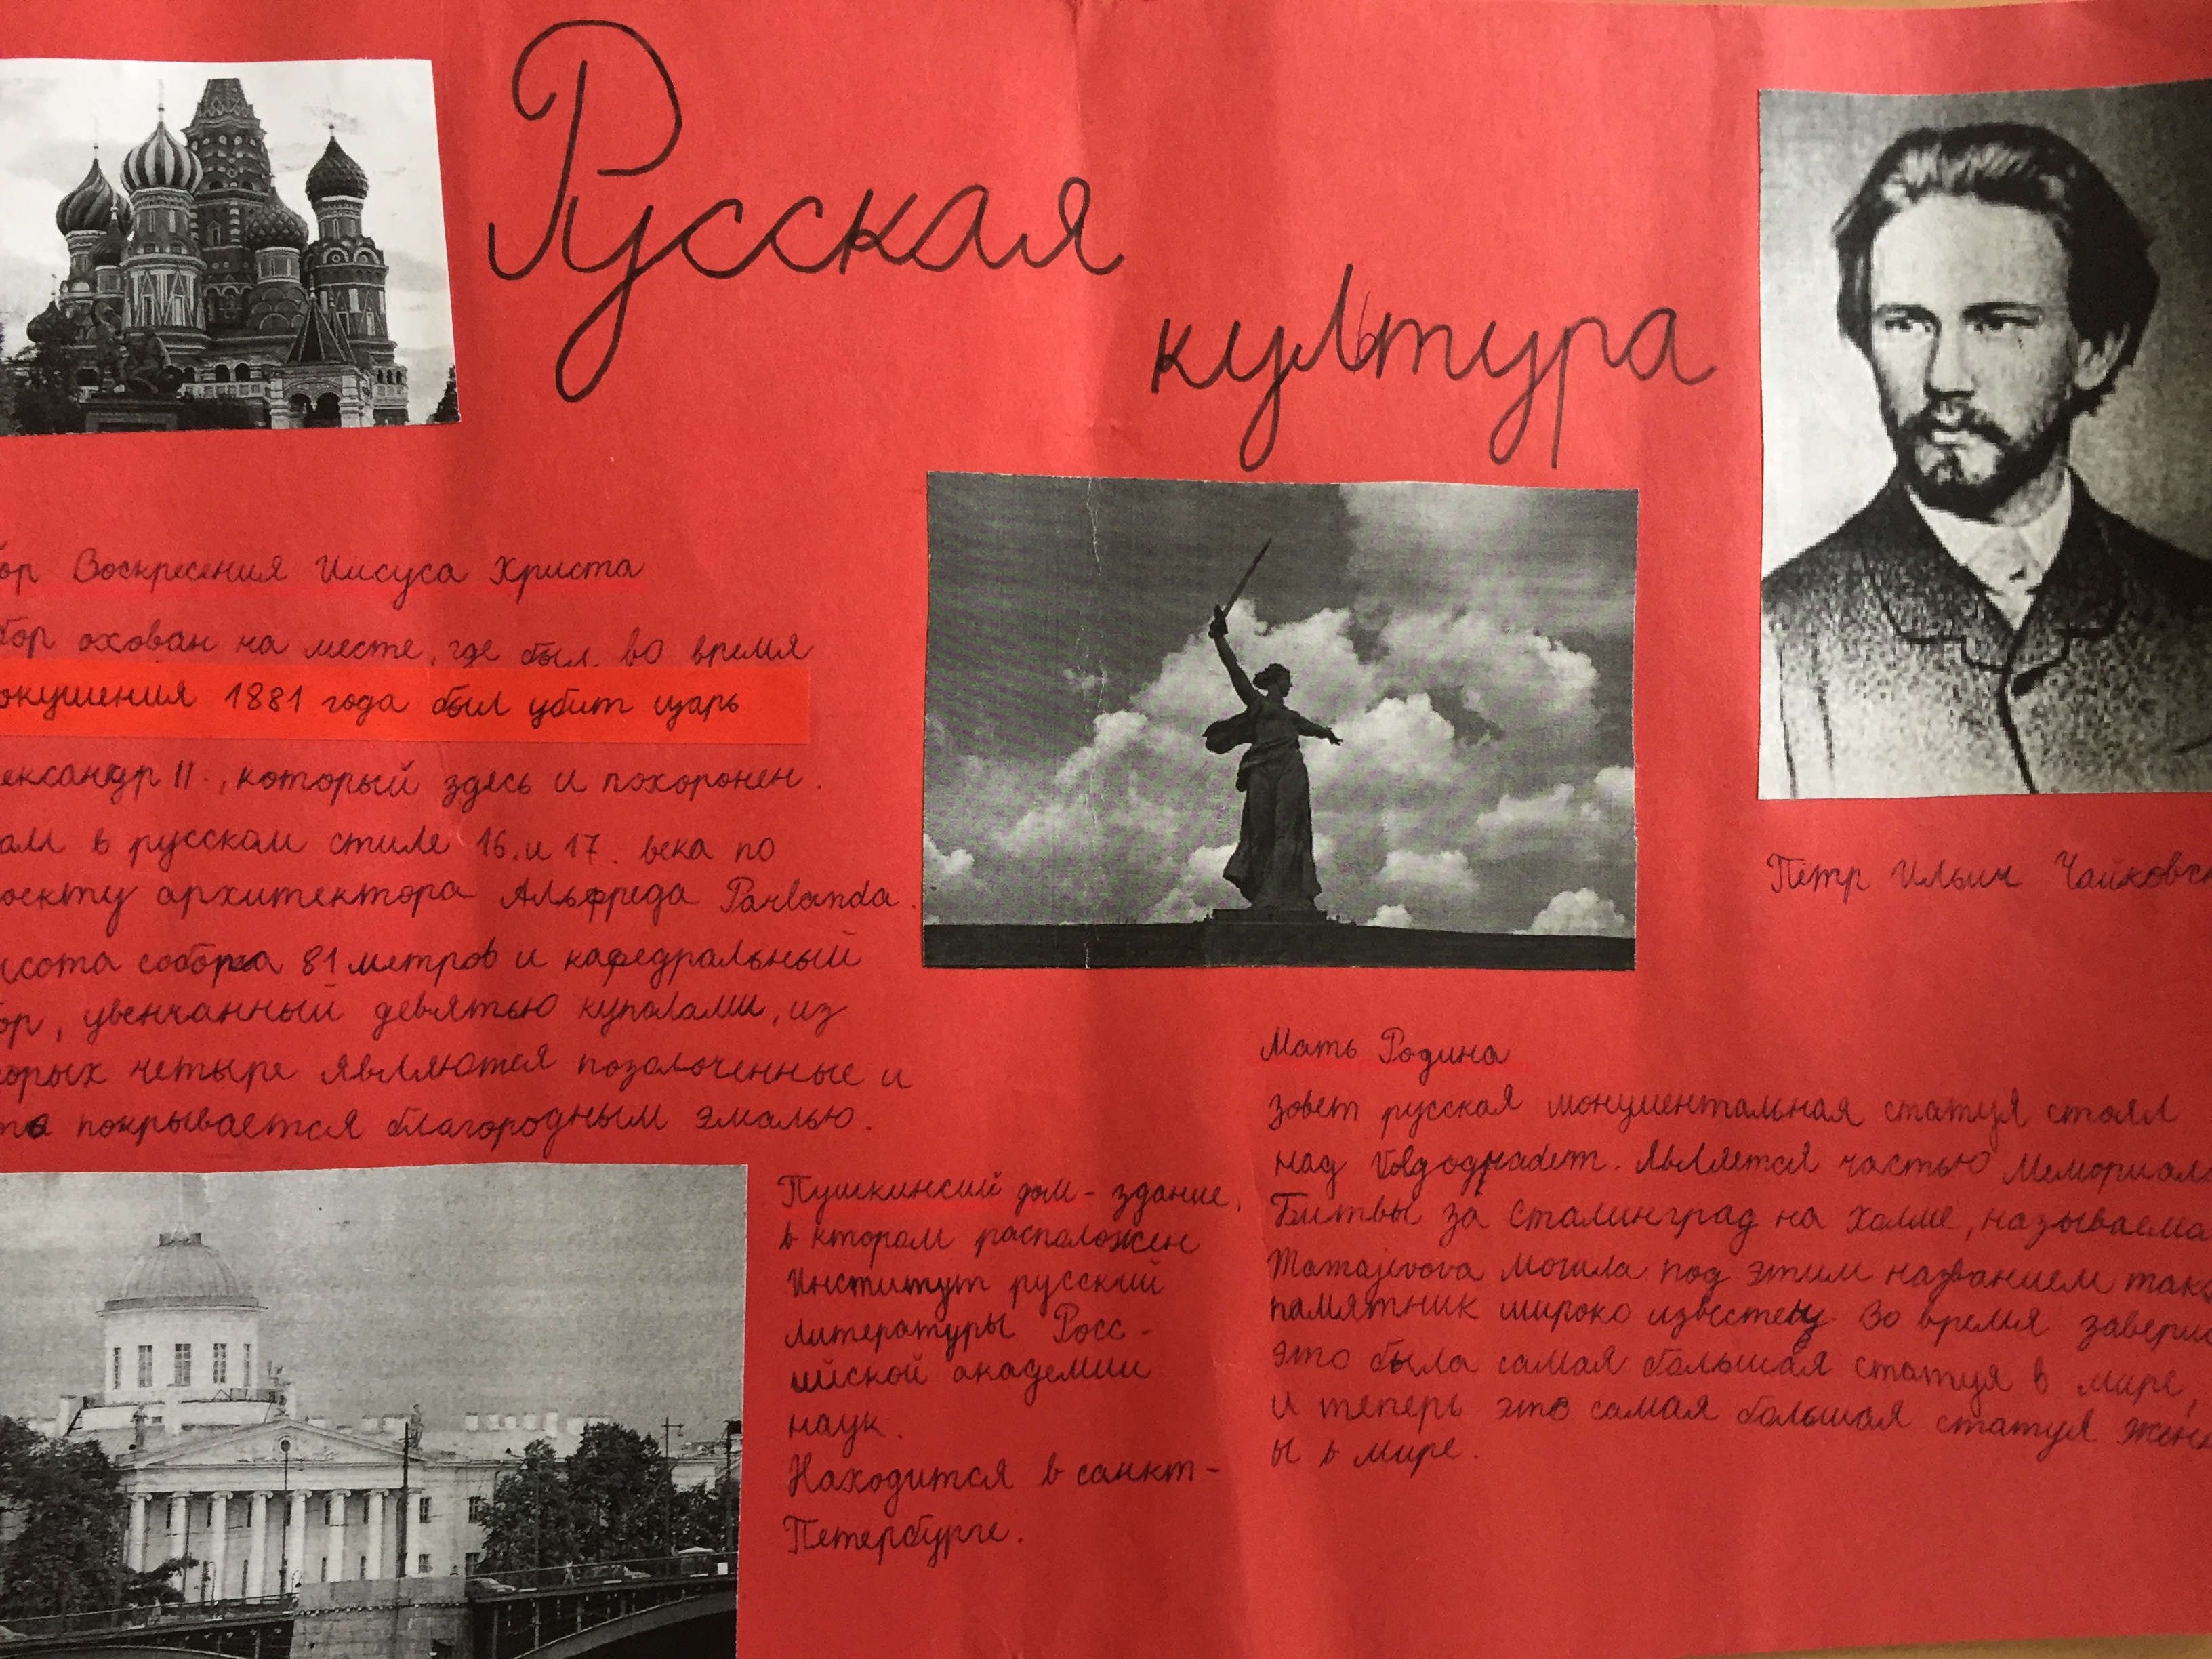 Русская
культура
ор Воскресения Иисуса Христа
бор охован на месте, где был. во время
окушения 1881 года был убит царь
ександр II., который здесь и похоронен.
в русском стиле 16. и 17. века по
оекту архитектора Альфреда Parlanda.
сота собора 81 метров и кафедральный
ор, увенчанный девятью куполами, из
орых четыре являются позолоченные и
покрывается благородным эмалью.
Пётр Ильич Чайковс
Пушкинсий дом - здание,
в ктором расположен
Институт русский
литературы Росс-
ийской академии
наук.
Находится в санкт-
Петербурге.
Мать Родина
зовет русская монументальная статуя стоял
над Volgogradem. Является частью Мемориал
Битвы за Сталинград на холме, называема
Mamajevova могила под этим названием так
памятник широко известен. Во время заверш
это была самая большая статуя в мире,
и теперь это самая большая статуя жен
ы в мире.